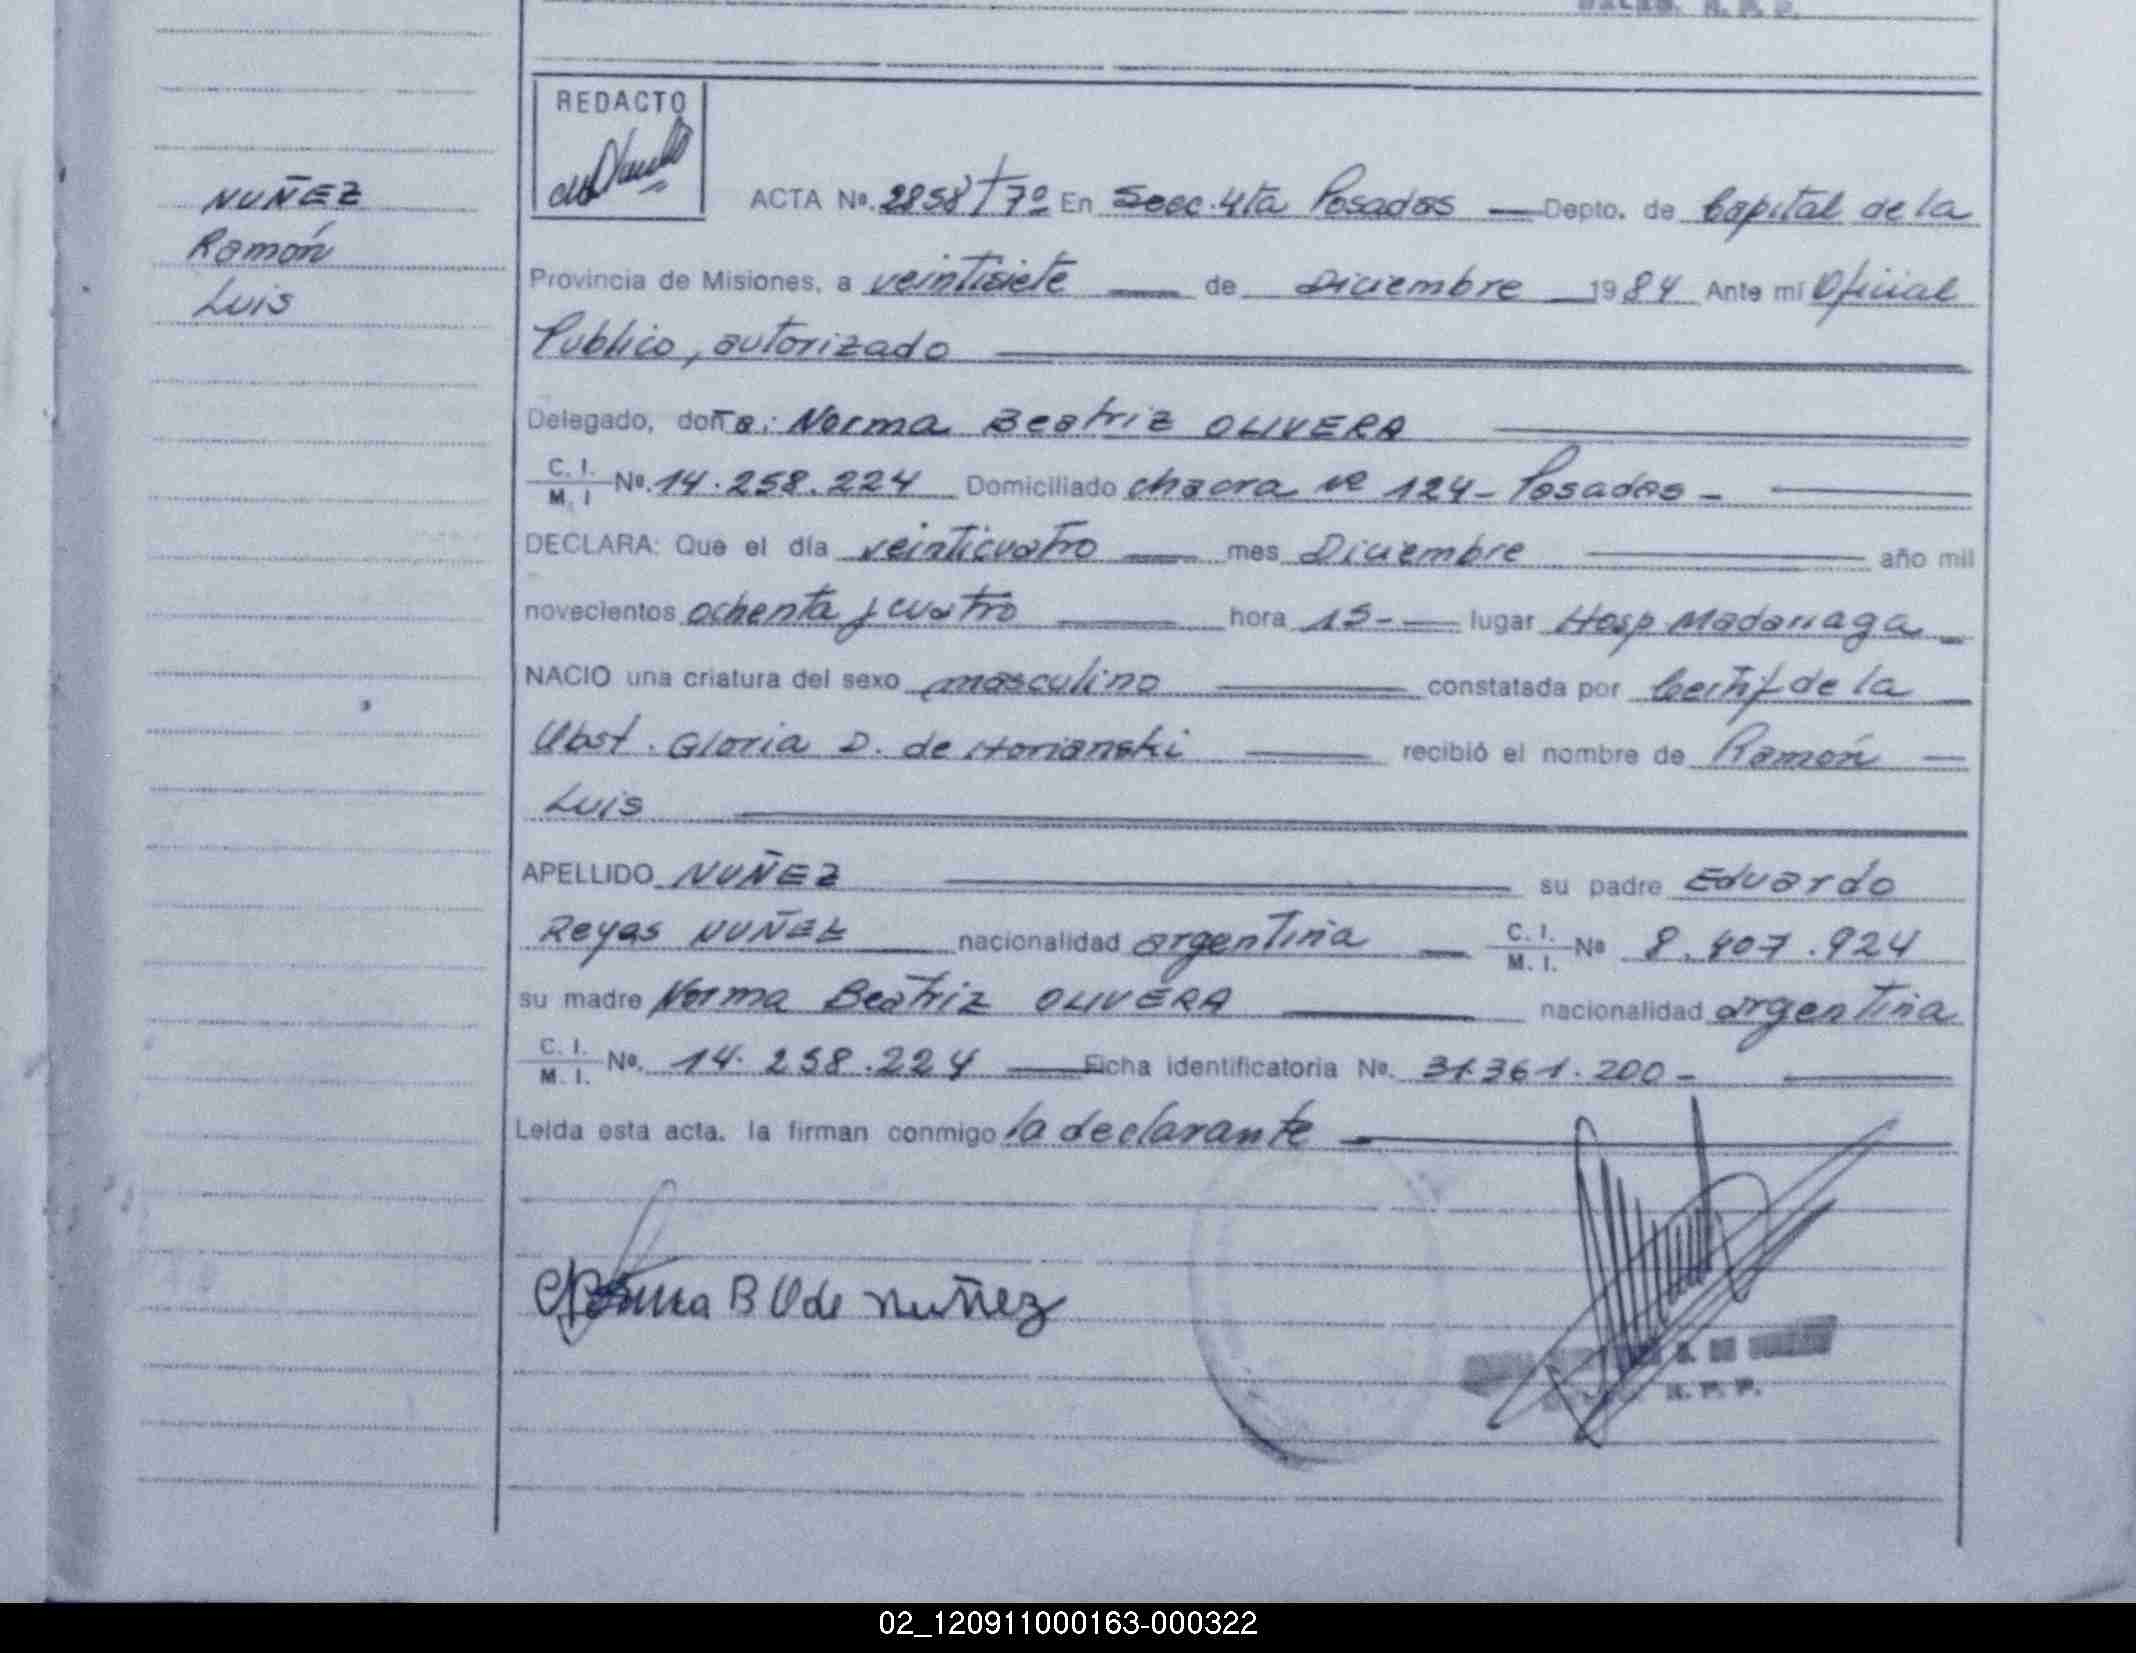 NUÑEZ
Ramón
Luis
REDACTO
ACTA Nº. 2858 T 7º En Secc. 4ta Posadas — Depto. de Capital de la
Provincia de Misiones, a veintisiete — de Diciembre 1984 Ante mí Oficial
Publico, autorizado
Delegado, doña: Norma Beatriz OLIVERA
C. I. / M. I Nº. 14.258.224 Domiciliado chacra Nº 124- Posadas -
DECLARA: Que el día veinticuatro — mes Diciembre — año mil
novecientos ochenta y cuatro — hora 15- — lugar Hosp Madariaga -
NACIO una criatura del sexo masculino — constatada por Certif de la
Obst. Gloria D. de Horianski — recibió el nombre de Ramón —
Luis
APELLIDO NUÑEZ — su padre Eduardo
Reyes NUÑEZ — nacionalidad argentina — C. I. / M. I. Nº 8.407.924
su madre Norma Beatriz OLIVERA — nacionalidad argentina
C. I. / M. I. Nº. 14.258.224 — Ficha identificatoria Nº. 31.361.200 -
Leída esta acta, la firman conmigo la declarante
Norma B O de Nuñez
R. P. P.
02_120911000163-000322